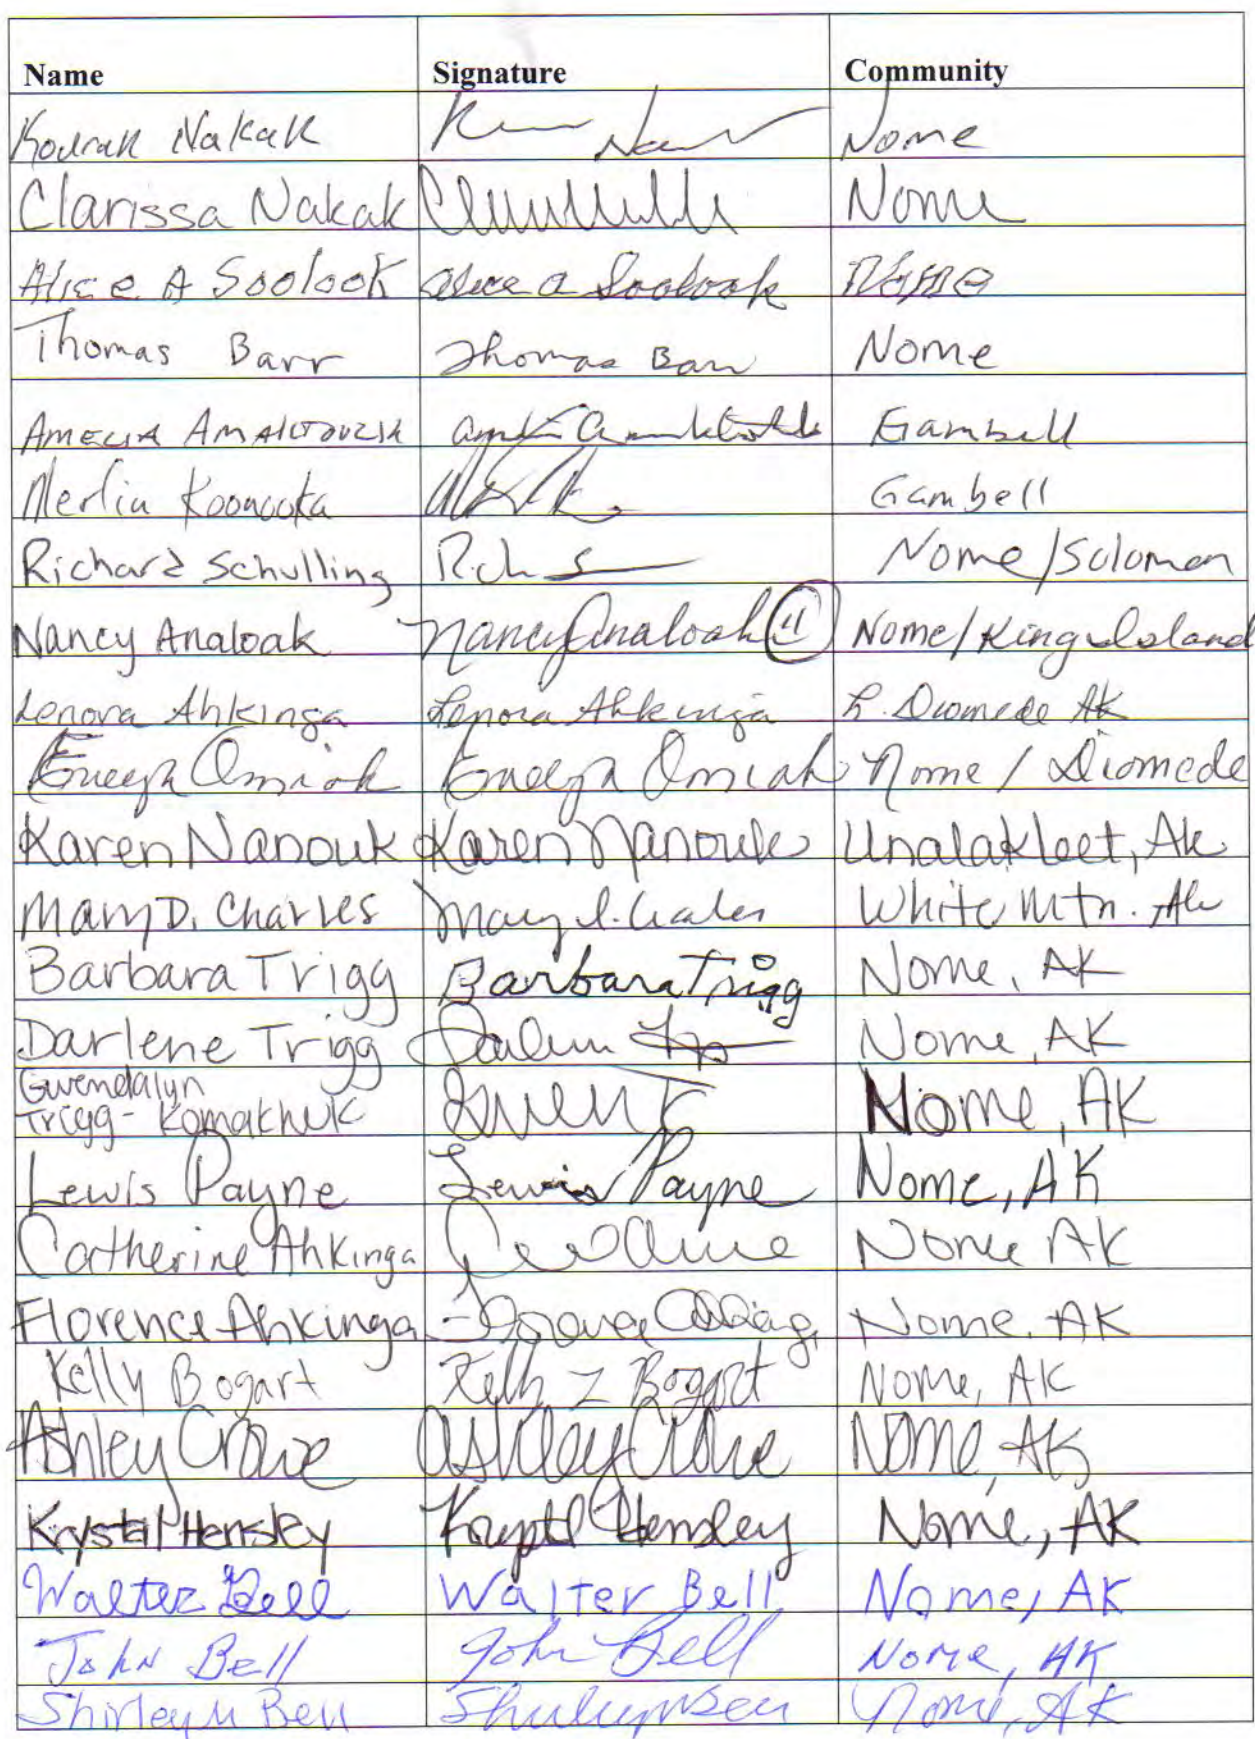 Name Signature Community
Nakak Nome
Clarissa Nakak Nome
Alice A Soolook Alice A Soolook Nome
Thomas Barr Thomas Barr Nome
Amelia Gambell
Merlin Koonooka Gambell
Richard Schulling Nome/Solomon
Nancy Analoak Nancy Analoak Nome/King Island
Lenora Ahkinga Lenora Ahkinga L. Diomede AK
Omiak Omiak Nome / Diomede
Karen Nanouk Karen Nanouk Unalakleet, Ak
Mary D. Charles Mary D. Charles White Mtn. Ak
Barbara Trigg Barbara Trigg Nome, AK
Darlene Trigg Nome, AK
Gwendalyn
Trigg-Komakhuk Gwen T Nome, AK
Lewis Payne Lewis Payne Nome, AK
Catherine Ahkinga Nome AK
Florence Ahkinga Nome, AK
Kelly Bogart Kelly Z Bogart Nome, AK
Ashley Crowe Ashley Crowe Nome, AK
Krystal Hensley Krystal Hensley Nome, AK
Walter Bell Walter Bell Nome, AK
John Bell John Bell Nome, AK
Shirley M Bell Shirley M Bell Nome, AK